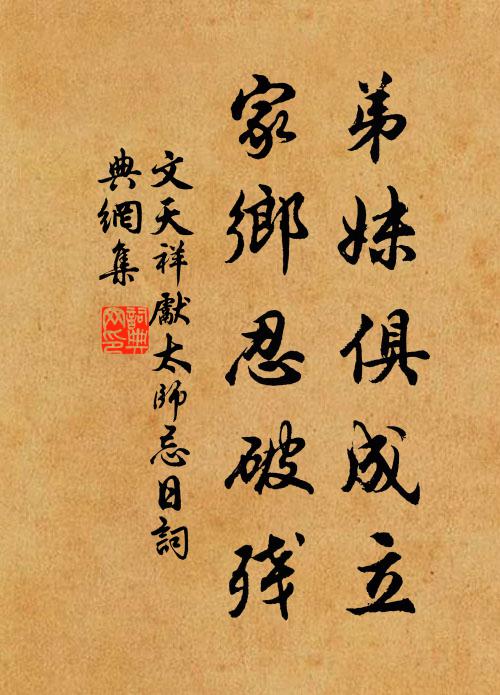 弟妹俱成立
家鄉忍破残
文天祥獻太師忌日詞
典網集
詞典
网印